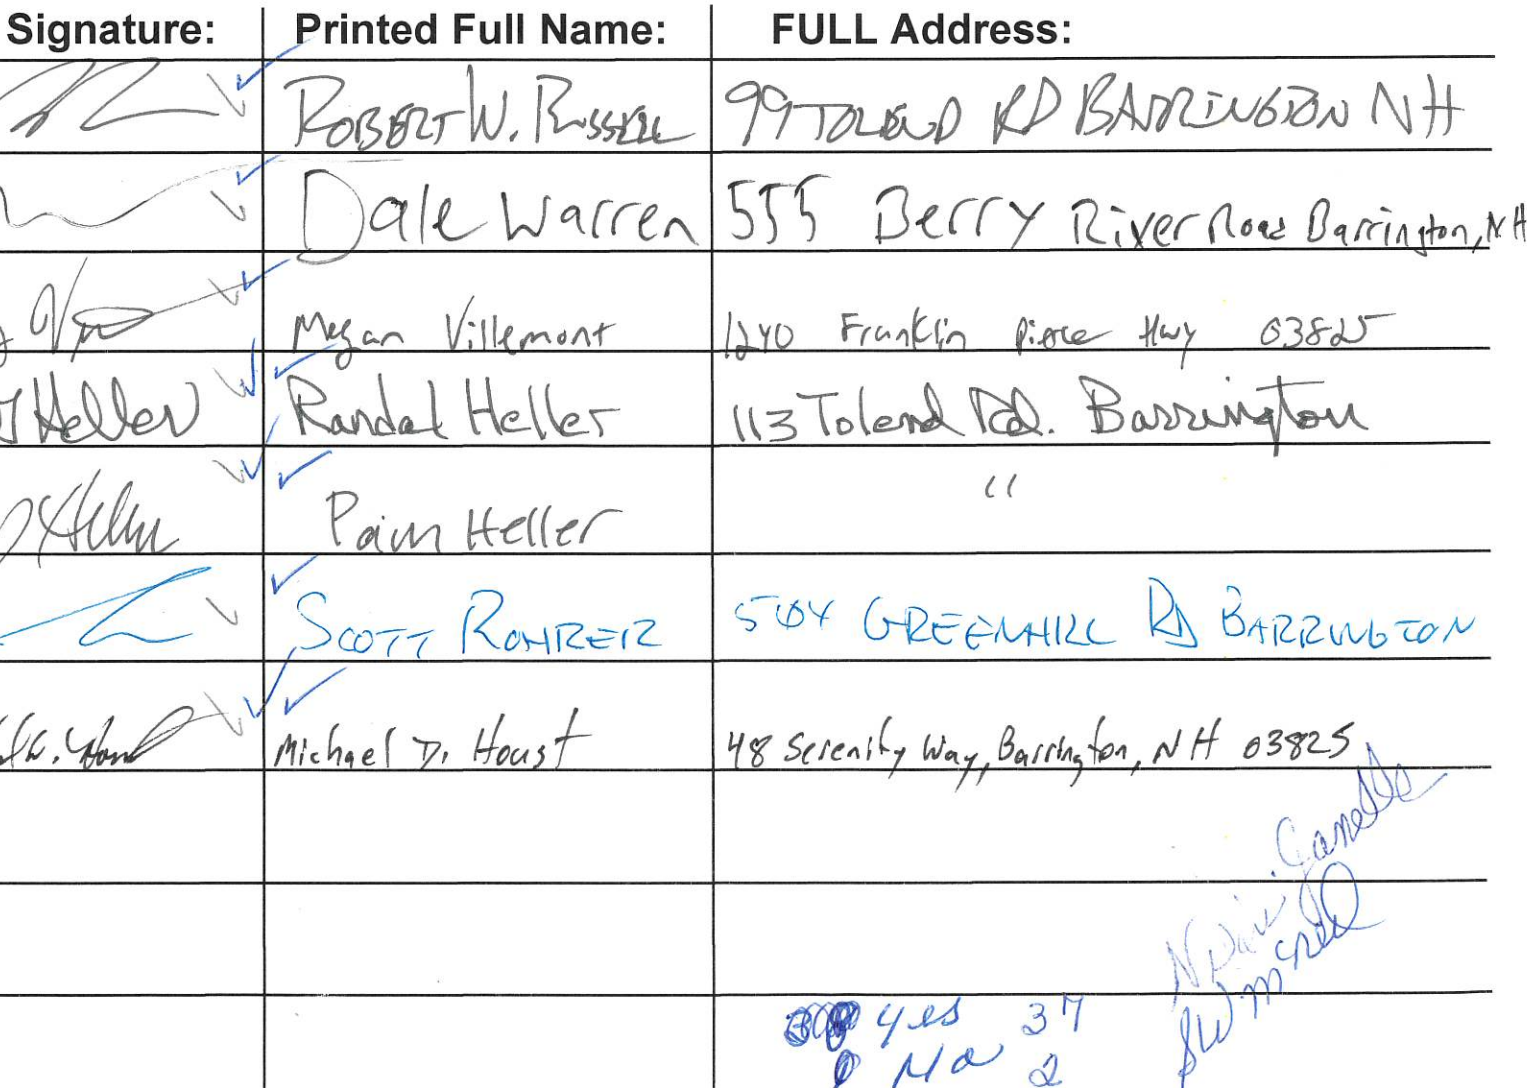 Signature: Printed Full Name: FULL Address:
ROBERT W. RUSSELL 99 TOLEND RD BARRINGTON NH
Dale Warren 555 Berry River Road Barrington, NH
Megan Villemont 1240 Franklin Pierce Hwy 03825
Heller Randal Heller 113 Tolend Rd. Barrington
Heller Pam Heller "
SCOTT ROHRER 504 GREENHILL RD BARRINGTON
Michael D. Houst 48 Serenity Way, Barrington, NH 03825
Yes 37
No 2